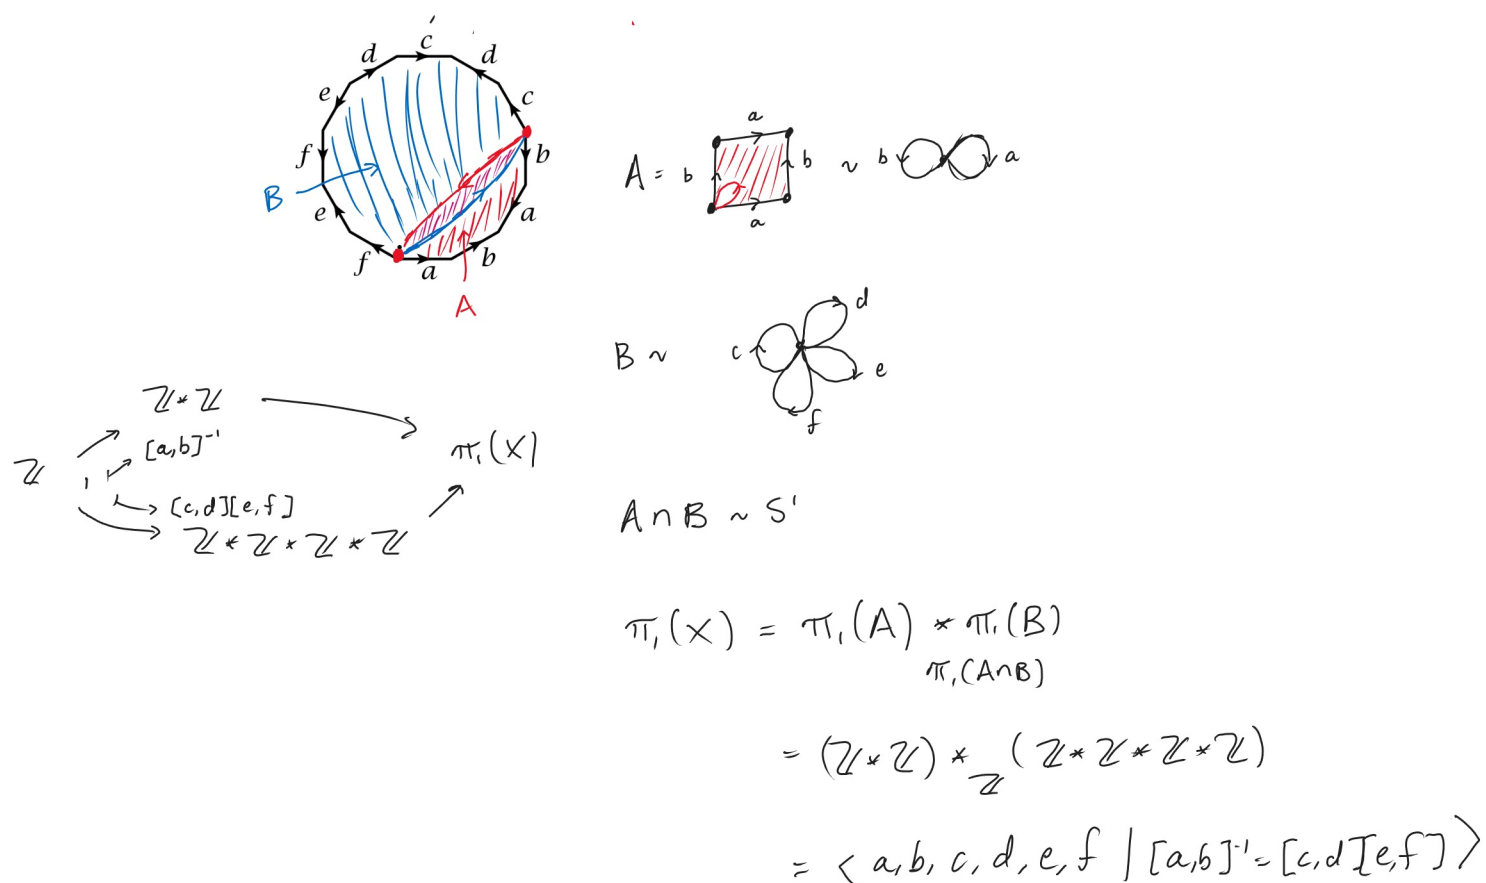 c
d d
e c
f b
B
e a
f a b
A
A = b a b a ~ b a
B ~ c d e f
ℤ * ℤ
[a,b]⁻¹
ℤ , π₁(X)
[c,d][e,f]
ℤ * ℤ * ℤ * ℤ
A ∩ B ~ S¹
π₁(X) = π₁(A) * π₁(B)
π₁(A∩B)
= (ℤ * ℤ) *_ℤ (ℤ * ℤ * ℤ * ℤ)
= ⟨ a, b, c, d, e, f | [a,b]⁻¹ = [c,d][e,f] ⟩